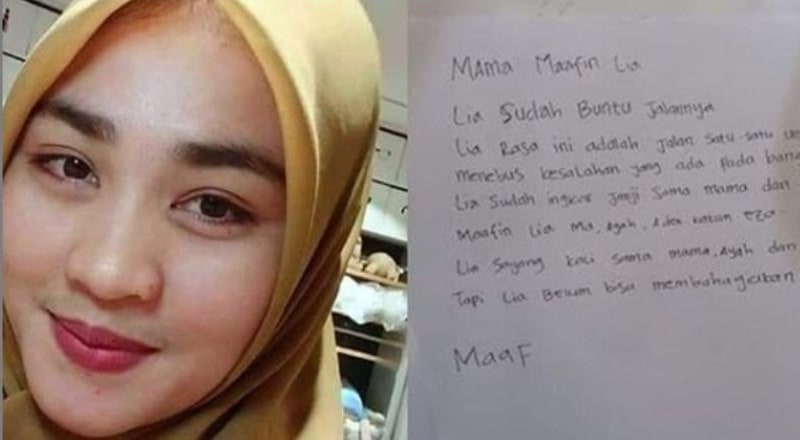 Mama Maafin Lia
Lia Sudah Buntu Jalannya
Lia Rasa ini adalah jalan satu-satu
menebus kesalahan yang ada pada
Lia Sudah ingkar janji Sama mama dan
Maafin Lia Ma, Ayah, Adek eza
Lia Sayang Sama mama, Ayah dan
Tapi Lia Belum bisa membahagiakan
Maaf